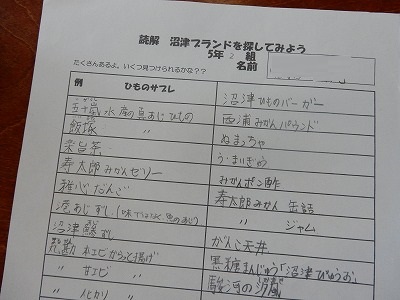 読解 沼津ブランドを探してみよう
5年 2 組
たくさんあるよ。いくつ見つけられるかな?? 名前
例 ひものサブレ
沼津ひものバーガー
水産の真あじひもの
西浦みかんパウンド
飯塚
ぬまっちゃ
茶
うまいぎゅう
寿太郎みかんゼリー
みかんポン酢
雅心だんご
寿太郎みかん 缶詰
港あじずし(味ではなく魚のあじ)
〃 ジャム
沼津
かんこ天丼
からっと揚げ
黒糖まんじゅう「沼津びゅうお」
〃 甘エビ 〃
駿河の
〃